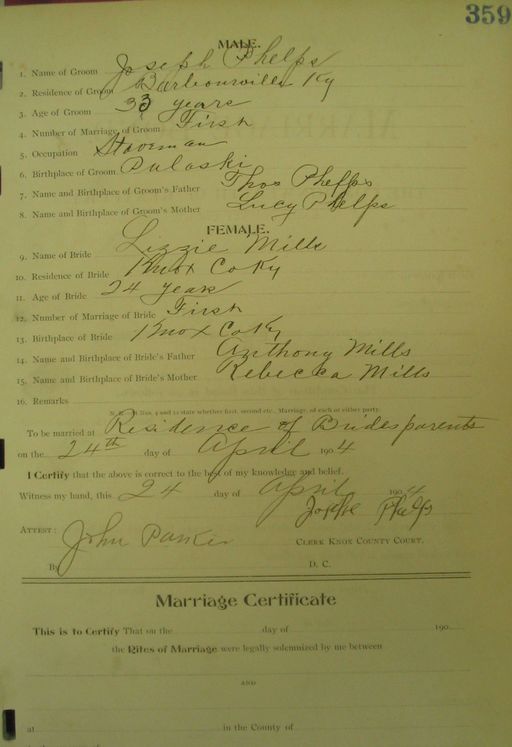 359
MALE.
1. Name of Groom Joseph Phelps
2. Residence of Groom Barbourville Ky
3. Age of Groom 33 years
4. Number of Marriage of Groom First
5. Occupation
6. Birthplace of Groom Pulaski
7. Name and Birthplace of Groom's Father Thos Phelps
8. Name and Birthplace of Groom's Mother Lucy Phelps
FEMALE.
9. Name of Bride Lizzie Mills
10. Residence of Bride Knox Co Ky
11. Age of Bride 24 years
12. Number of Marriage of Bride First
13. Birthplace of Bride Knox Co Ky
14. Name and Birthplace of Bride's Father Anthony Mills
15. Name and Birthplace of Bride's Mother Rebecca Mills
16. Remarks
N. B.—At Nos. 4 and 12 state whether first, second etc., Marriage, of each or either party.
To be married at Residence of Brides parents
on the 24th day of April 1904
I Certify that the above is correct to the best of my knowledge and belief.
Witness my hand, this 24 day of April 1904
Joseph Phelps
ATTEST: John Parker
CLERK KNOX COUNTY COURT.
By D. C.
Marriage Certificate
This is to Certify That on the day of 190
the Rites of Marriage were legally solemnized by me between
AND
at in the County of